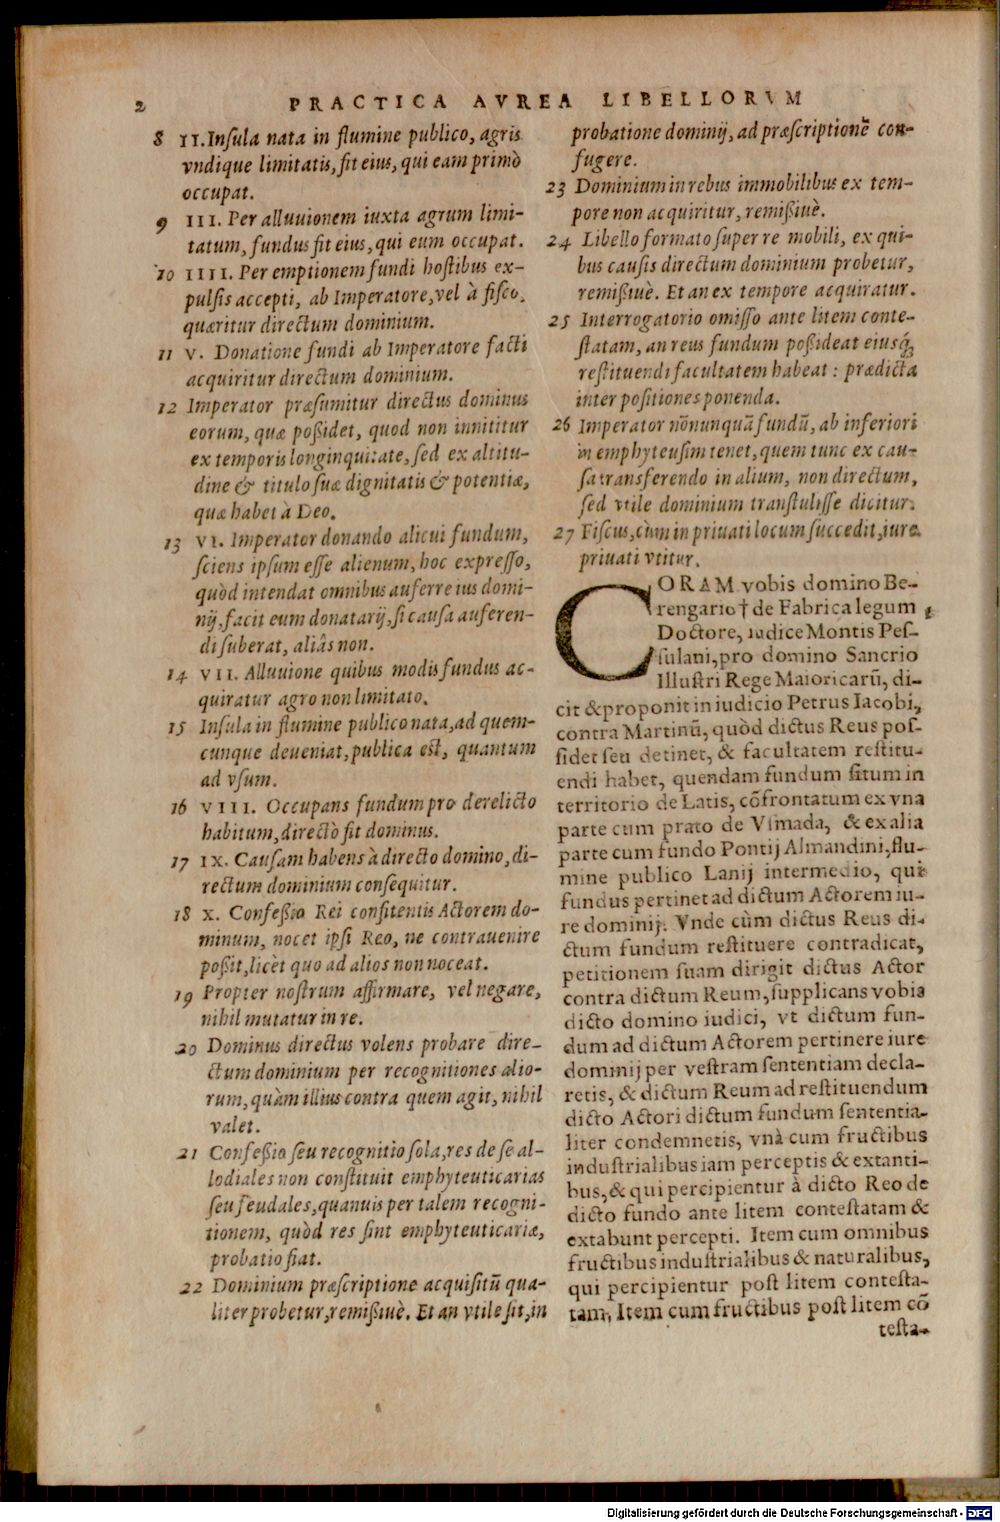 2 PRACTICA AVREA LIBELLORVM
8 II. Insula nata in flumine publico, agris
vndique limitatis, fit eius, qui eam primò
occupat.
9 III. Per alluuionem iuxta agrum limi-
tatum, fundus fit eius, qui eum occupat.
10 IIII. Per emptionem fundi hostibus ex-
pulsis accepti, ab Imperatore, vel à fisco,
quæritur directum dominium.
11 V. Donatione fundi ab Imperatore facti
acquiritur directum dominium.
12 Imperator præsumitur directus dominus
eorum, quæ poßidet, quod non innititur
ex temporis longinquitate, sed ex altitu-
dine & titulo suæ dignitatis & potentiæ,
quæ habet à Deo.
13 VI. Imperator donando alicui fundum,
sciens ipsum esse alienum, hoc expresso,
quòd intendat omnibus auferre ius domi-
nij, facit eum donatarij, si causa auferen-
di suberat, aliâs non.
14 VII. Alluuione quibus modis fundus ac-
quiratur agro non limitato.
15 Insula in flumine publico nata, ad quem-
cunque deueniat, publica est, quantum
ad vsum.
16 VIII. Occupans fundum pro derelicto
habitum, directò fit dominus.
17 IX. Causam habens à directo domino, di-
rectum dominium consequitur.
18 X. Confeßio Rei confitentis Actorem do-
minum, nocet ipsi Reo, ne contrauenire
poßit, licèt quo ad alios non noceat.
19 Propter nostrum affirmare, vel negare,
nihil mutatur in re.
20 Dominus directus volens probare dire-
ctum dominium per recognitiones alio-
rum, quàm illius contra quem agit, nihil
valet.
21 Confeßio seu recognitio sola, res de se al-
lodiales non constituit emphyteuticarias
seu feudales, quanuis per talem recogni-
tionem, quòd res sint emphyteuticariæ,
probatio fiat.
22 Dominium præscriptione acquisitū qua-
liter probetur, remißiuè. Et an vtile sit, in
probatione dominij, ad præscriptionē con-
fugere.
23 Dominium in rebus immobilibus ex tem-
pore non acquiritur, remißiuè.
24 Libello formato super re mobili, ex qui-
bus causis directum dominium probetur,
remißiuè. Et an ex tempore acquiratur.
25 Interrogatorio omisso ante litem conte-
statam, an reus fundum poßideat eiusq́;
restituendi facultatem habeat : prædicta
inter positiones ponenda.
26 Imperator nōnunquā fundū, ab inferiori
in emphyteusim tenet, quem tunc ex cau-
sa transferendo in alium, non directum,
sed vtile dominium transtulisse dicitur.
27 Fiscus, cùm in priuati locum succedit, iure
priuati vtitur.
CORAM vobis domino Be-
rengario † de Fabrica legum 1
Doctore, iudice Montis Pes-
sulani, pro domino Sancrio
Illustri Rege Maioricarū, di-
cit & proponit in iudicio Petrus Iacobi,
contra Martinū, quòd dictus Reus pos-
sidet seu detinet, & facultatem restitu-
endi habet, quendam fundum situm in
territorio de Latis, cōfrontatum ex vna
parte cum prato de Vimada, & ex alia
parte cum fundo Pontij Almandini, flu-
mine publico Lanij intermedio, qui
fundus pertinet ad dictum Actorem iu-
re dominij. Vnde cùm dictus Reus di-
ctum fundum restituere contradicat,
petitionem suam dirigit dictus Actor
contra dictum Reum, supplicans vobis
dicto domino iudici, vt dictum fun-
dum ad dictum Actorem pertinere iure
dominij per vestram sententiam decla-
retis, & dictum Reum ad restituendum
dicto Actori dictum fundum sententia-
liter condemnetis, vnà cum fructibus
industrialibus iam perceptis & extanti-
bus, & qui percipientur à dicto Reo de
dicto fundo ante litem contestatam &
extabunt percepti. Item cum omnibus
fructibus industrialibus & naturalibus,
qui percipientur post litem contesta-
tam, Item cum fructibus post litem cō
testa-
Digitalisierung gefördert durch die Deutsche Forschungsgemeinschaft - DFG